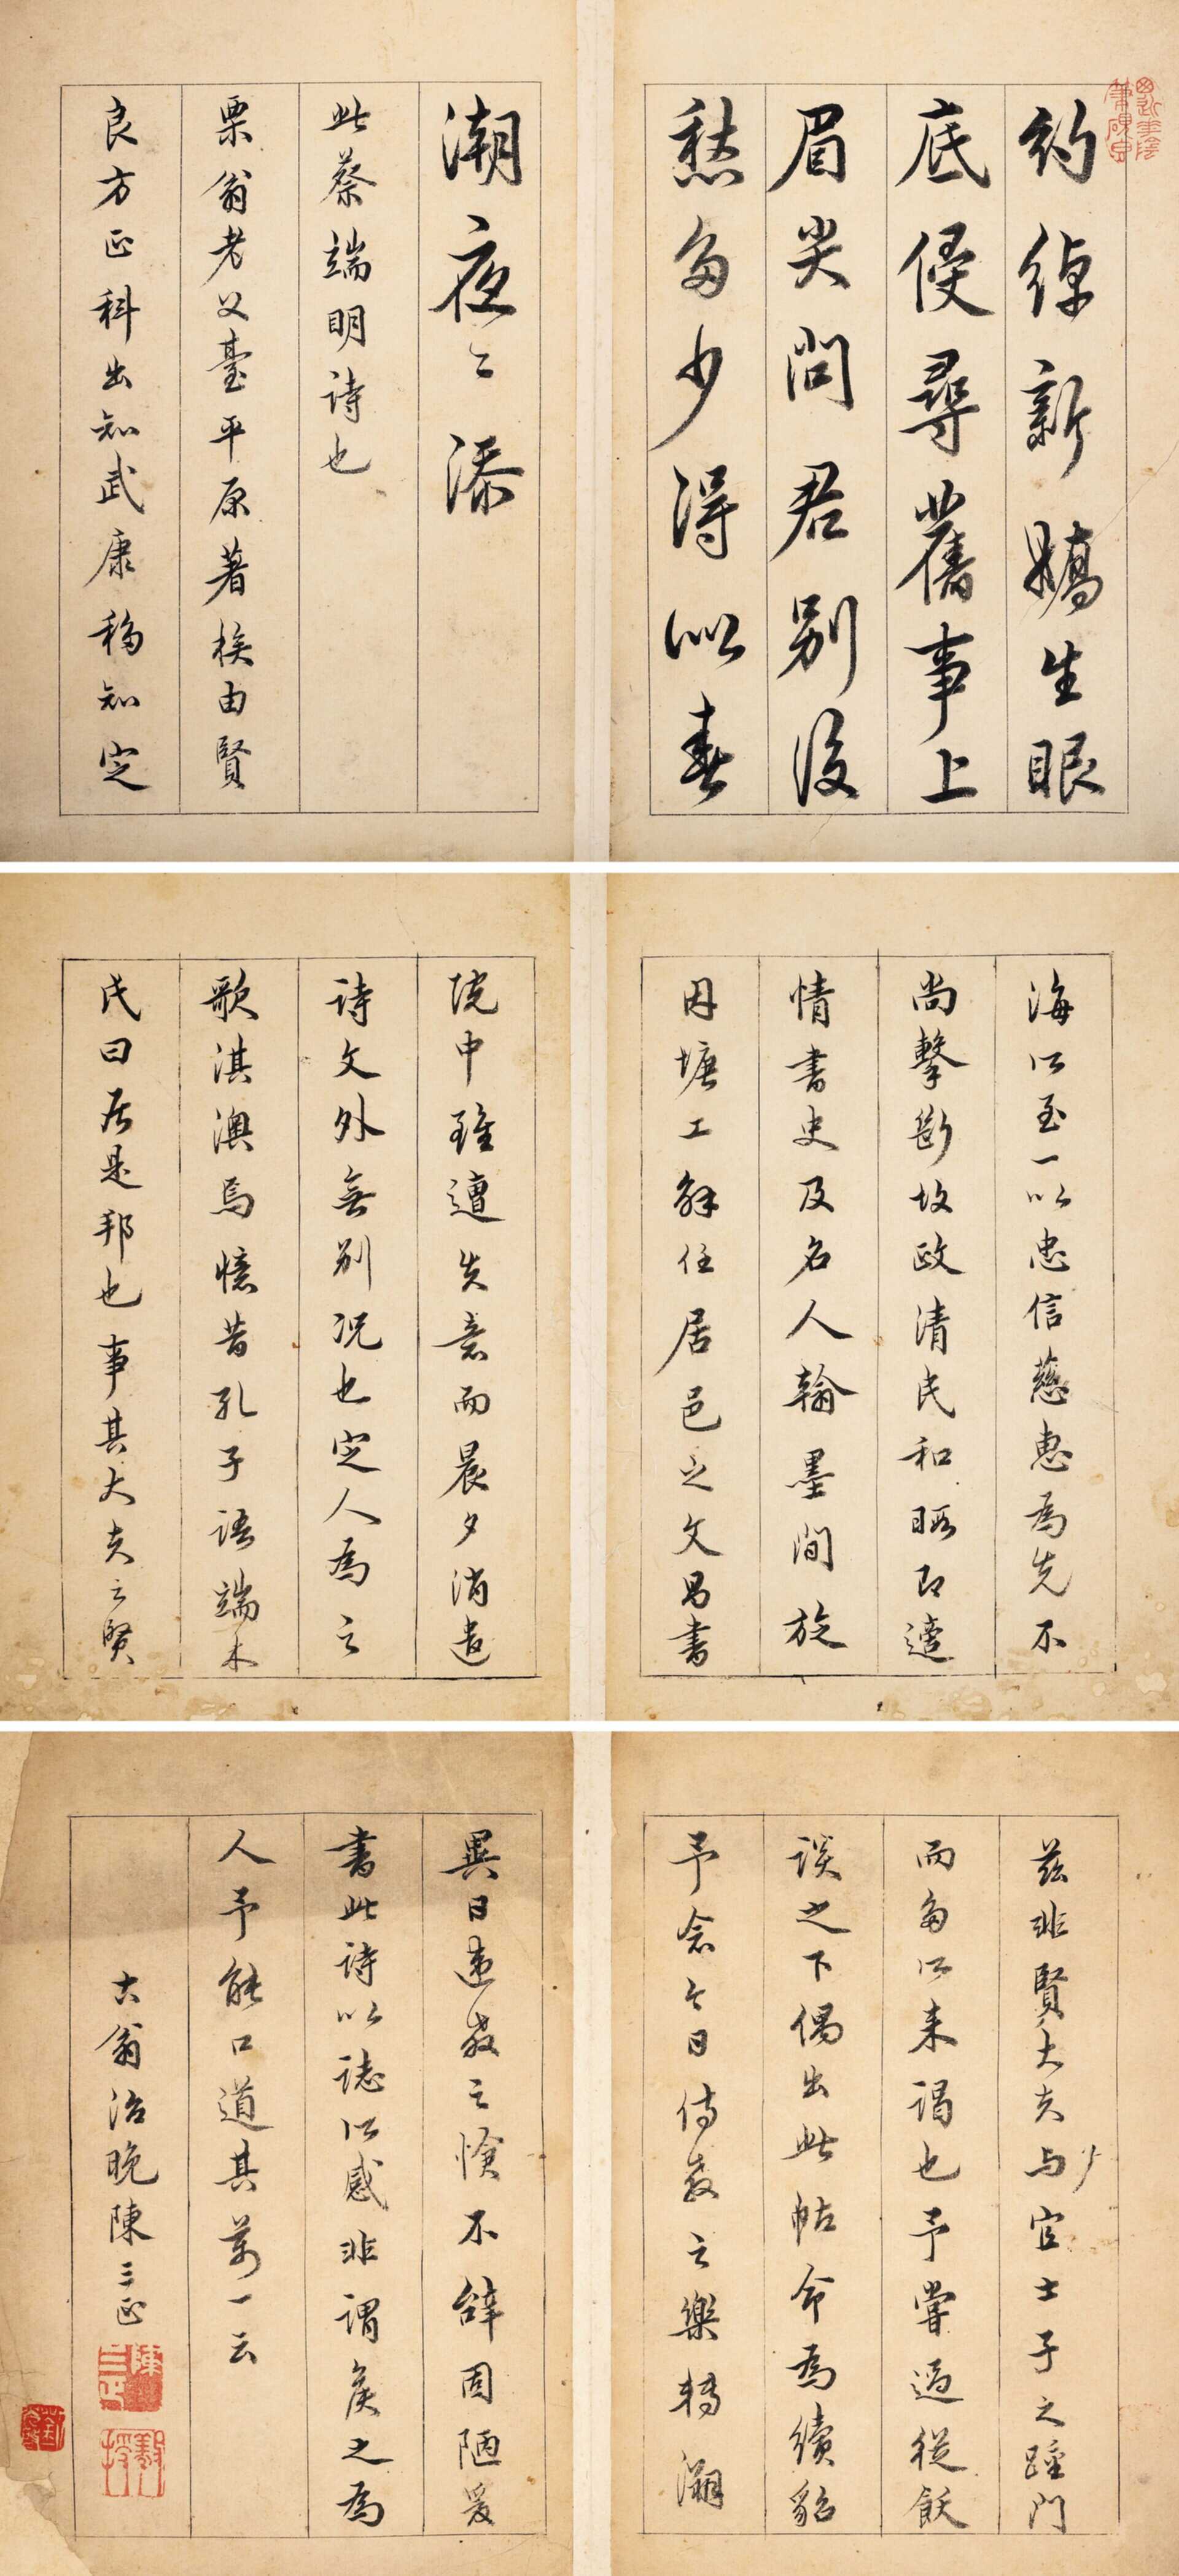 約綽新嬌生眼
底侵尋舊事上
眉尖問君別後
愁多少得似春
潮夜々添
此蔡端明詩也
栗翁老父臺平原著族由賢
良方正科出知武康移知定
海所至一以忠信慈惠為先不
尚擊斷故政清民和暇即適
情書史及名人翰墨間旋
因塘工解任居邑之文昌書
院中雖遭失意而晨夕消遣
詩文外無別況也定人為之
歌淇澳焉憶昔孔子語端木
氏曰居是邦也事其大夫之賢
茲非賢大夫与宜士子之踵門
而多所來謁也予嘗過從飫
談之下偶出此帖命為續貂
予念今日侍教之樂轉溯
異日違教之愴不辭固陋爰
書此詩以誌所感非謂矦之為
人予能口道其萬一云
古翁治晚陳三正
陳三正